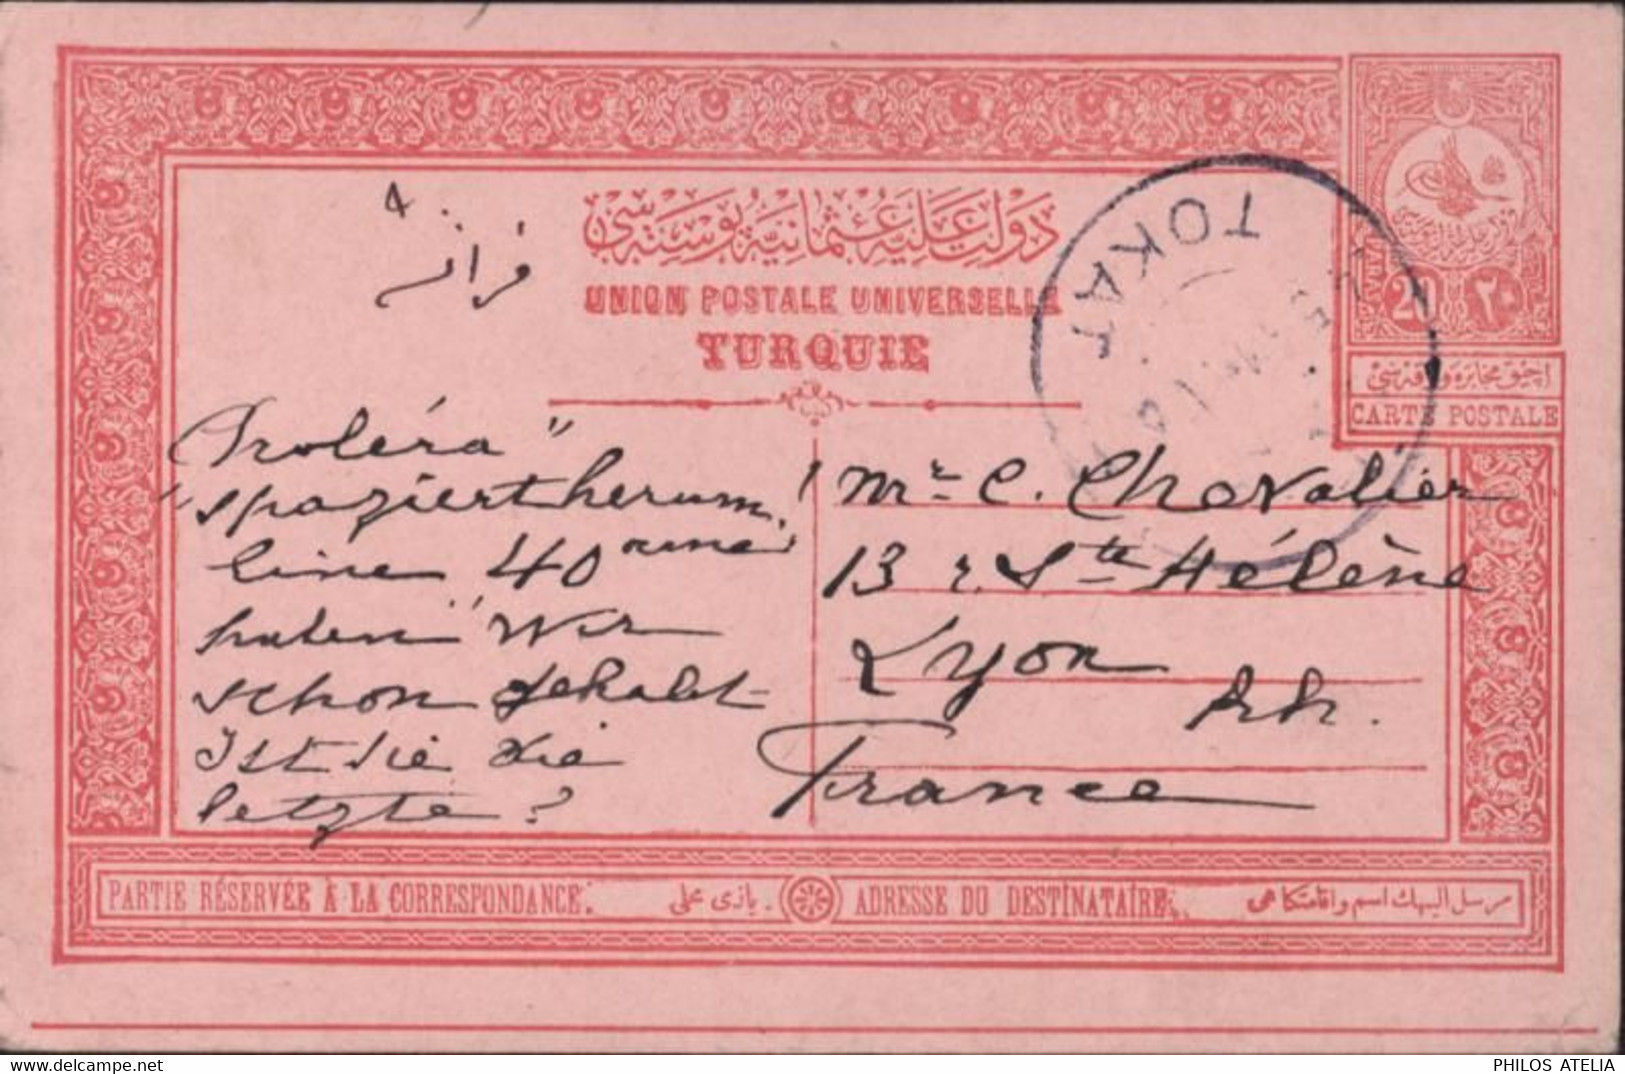 دولت عليۀ عثمانيه پوسته سى
UNION POSTALE UNIVERSELLE
TURQUIE
فرانسه
TOKAT
20 ٢٠
آچيق مخابره ورقه سى
CARTE POSTALE
"spaziert herum!
40
haben" wir
schon gehabt
Ist sie die
letzte?
Mr C. Chevalier
13 r. Ste Hélène
Lyon
Rh.
France
PARTIE RÉSERVÉE À LA CORRESPONDANCE. يازى محلى. ADRESSE DU DESTINATAIRE. مرسل اليهك اسم واقامتكاهى
PHILOS ATELIA